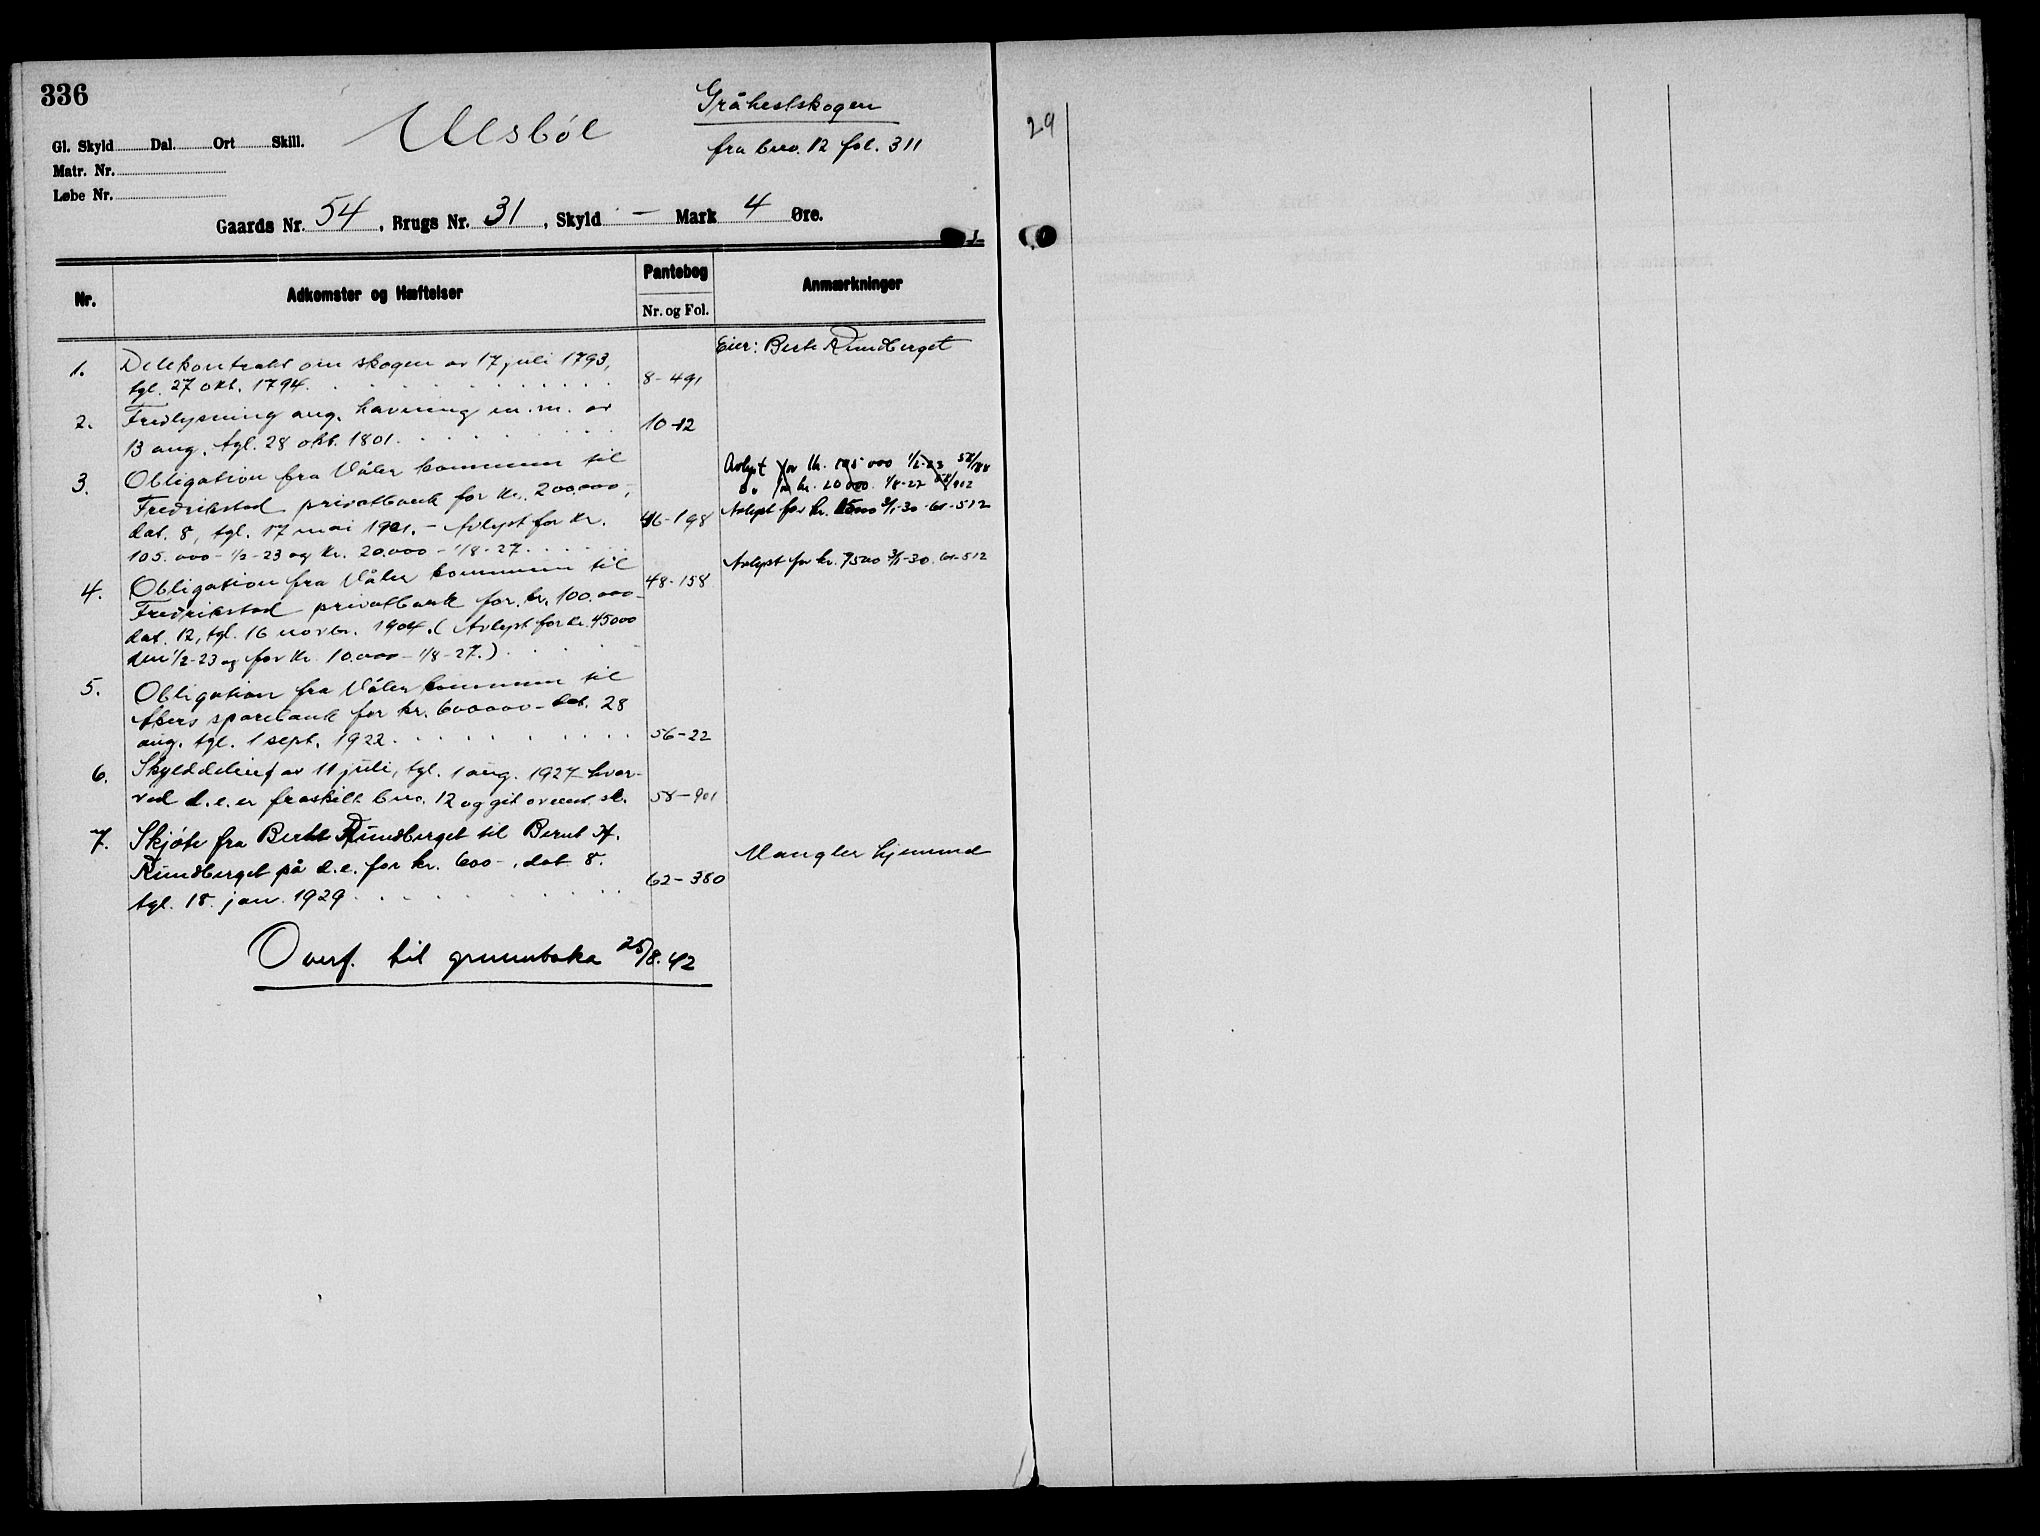 336
Gl. Skyld Dal. Ort Skill.
Matr. Nr.
Løbe Nr.
Ulsböl
Gråhestskogen
fra brno. 12 fol. 311
Gaards Nr. 54, Brugs Nr. 31, Skyld — Mark 4 Øre.
Nr.
Adkomster og Hæftelser
Pantebog
Nr. og Fol.
Anmærkninger
Eier: Berte Rundberget
1. Delekontrakt om skogen av 17 juli 1793,
tgl. 27 okt. 1794. 8-491
2. Fredlysning ang. havning m.m. av
13 aug. tgl. 28 okt. 1801. 10-12
3. Obligation fra Våler kommune til
Fredrikstad privatbank for kr. 200.000,
dat. 8, tgl. 17 mai 1921. - Avlyst for kr. 46-198
105.000 - 1/2-23 og kr. 20.000 - 1/8-27.
Avlyst for kr. 105 000 1/2-23
Do for kr. 20 000. 1/8-27 58/902
Avlyst for kr. 15000 3/1-30 61-512
4. Obligation fra Våler kommune til 48-158
Fredrikstad privatbank for kr. 100.000-
dat. 12, tgl. 16 novbr. 1904. (Avlyst for kr. 45000
den 1/2-23 og for kr. 10.000 - 1/8-27.)
Avlyst for kr. 7500 3/1-30. 61-512
5. Obligation fra Våler kommune til
Akers sparebank for kr. 600000 - dat. 28
aug. tgl. 1 sept. 1922. 56-22
6. Skylddelinf av 11 juli, tgl. 1 aug. 1927 hvor-
ved d.e. er fraskilt brno. 12 og git ovenst. sk. 58-901
7. Skjöte fra Berte Rundberget til Bernt H.
Rundberget på d.e. for kr. 600-, dat 8.
tgl. 18. jan. 1929 62-380
Mangler hjemmel
Overf. til grunnboka 25/8.42
29